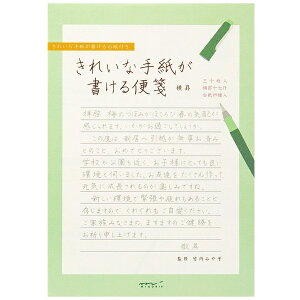 きれいな手紙が書ける下敷付き
きれいな手紙が
書ける便箋 横罫
三十枚入
横罫十七行
拝啓 梅のつぼみがほころび春の気配が
感じられます。いかがお過ごしでしょうか。
この度は、新居へお引越しが無事お済み
とのこと、おめでとうございます。
学校や公園も近く、お子様にとっても良い
環境と伺いました。お友達をたくさん作って
元気に成長されるのが楽しみですね。
新しい環境で緊張や疲れもあることと
存じますので、くれぐれもご自愛ください。
ご家族みなさまの、ますますのご健勝を
お祈り申し上げます。
敬具
MIDORI